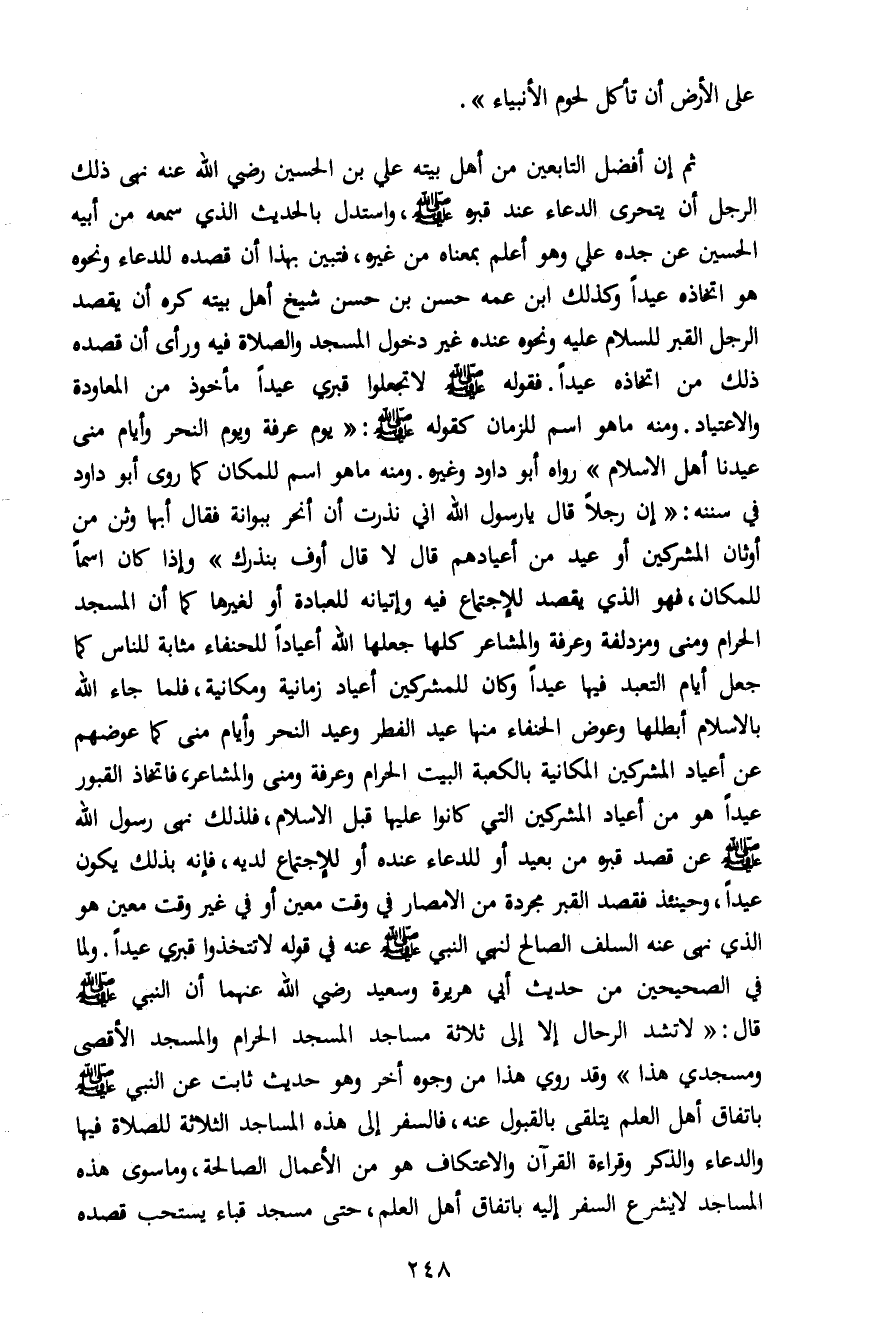 على الأرض أن تأكل لحوم الأنبياء » .
ثم إن أفضل التابعين من أهل بيته علي بن الحسين رضي الله عنه نهى ذلك
الرجل أن يتحرى الدعاء عند قبره ﷺ، واستدل بالحديث الذي سمعه من أبيه
الحسين عن جده علي وهو أعلم بمعناه من غيره، فتبين بهذا أن قصده للدعاء ونحوه
هو اتخاذه عيداً وكذلك ابن عمه حسن بن حسن شيخ أهل بيته كره أن يقصد
الرجل القبر للسلام عليه ونحوه عنده غير دخول المسجد والصلاة فيه ورأى أن قصده
ذلك من اتخاذه عيداً. فقوله ﷺ لاتجعلوا قبري عيداً مأخوذ من المعاودة
والاعتياد. ومنه ماهو اسم للزمان كقوله ﷺ: « يوم عرفة ويوم النحر وأيام منى
عيدنا أهل الاسلام » رواه أبو داود وغيره. ومنه ماهو اسم للمكان كما روى أبو داود
في سننه: « إن رجلاً قال يارسول الله اني نذرت أن أنحر ببوانة فقال أبها وثن من
أوثان المشركين أو عيد من أعيادهم قال لا قال أوف بنذرك » وإذا كان اسماً
للمكان، فهو الذي يقصد للإجتماع فيه وإتيانه للعبادة أو لغيرها كما أن المسجد
الحرام ومنى ومزدلفة وعرفة والمشاعر كلها جعلها الله أعياداً للحنفاء مثابة للناس كما
جعل أيام التعبد فيها عيداً وكان للمشركين أعياد زمانية ومكانية، فلما جاء الله
بالاسلام أبطلها وعوض الحنفاء منها عيد الفطر وعيد النحر وأيام منى كما عوضهم
عن أعياد المشركين المكانية بالكعبة البيت الحرام وعرفة ومنى والمشاعر، فاتخاذ القبور
عيداً هو من أعياد المشركين التي كانوا عليها قبل الاسلام، فلذلك نهى رسول الله
ﷺ عن قصد قبره من بعيد أو للدعاء عنده أو للإجتماع لديه، فإنه بذلك يكون
عيداً، وحينئذ فقصد القبر مجردة من الامصار في وقت معين أو في غير وقت معين هو
الذي نهى عنه السلف الصالح لنهي النبي ﷺ عنه في قوله لاتتخذوا قبري عيداً. ولما
في الصحيحين من حديث أبي هريرة وسعيد رضي الله عنهما أن النبي ﷺ
قال: « لاتشد الرحال إلا إلى ثلاثة مساجد المسجد الحرام والمسجد الأقصى
ومسجدي هذا » وقد روي هذا من وجوه أخر وهو حديث ثابت عن النبي ﷺ
باتفاق أهل العلم يتلقى بالقبول عنه، فالسفر إلى هذه المساجد الثلاثة للصلاة فيها
والدعاء والذكر وقراءة القرآن والاعتكاف هو من الأعمال الصالحة، وماسوى هذه
المساجد لايشرع السفر إليه باتفاق أهل العلم، حتى مسجد قباء يستحب قصده
٢٤٨